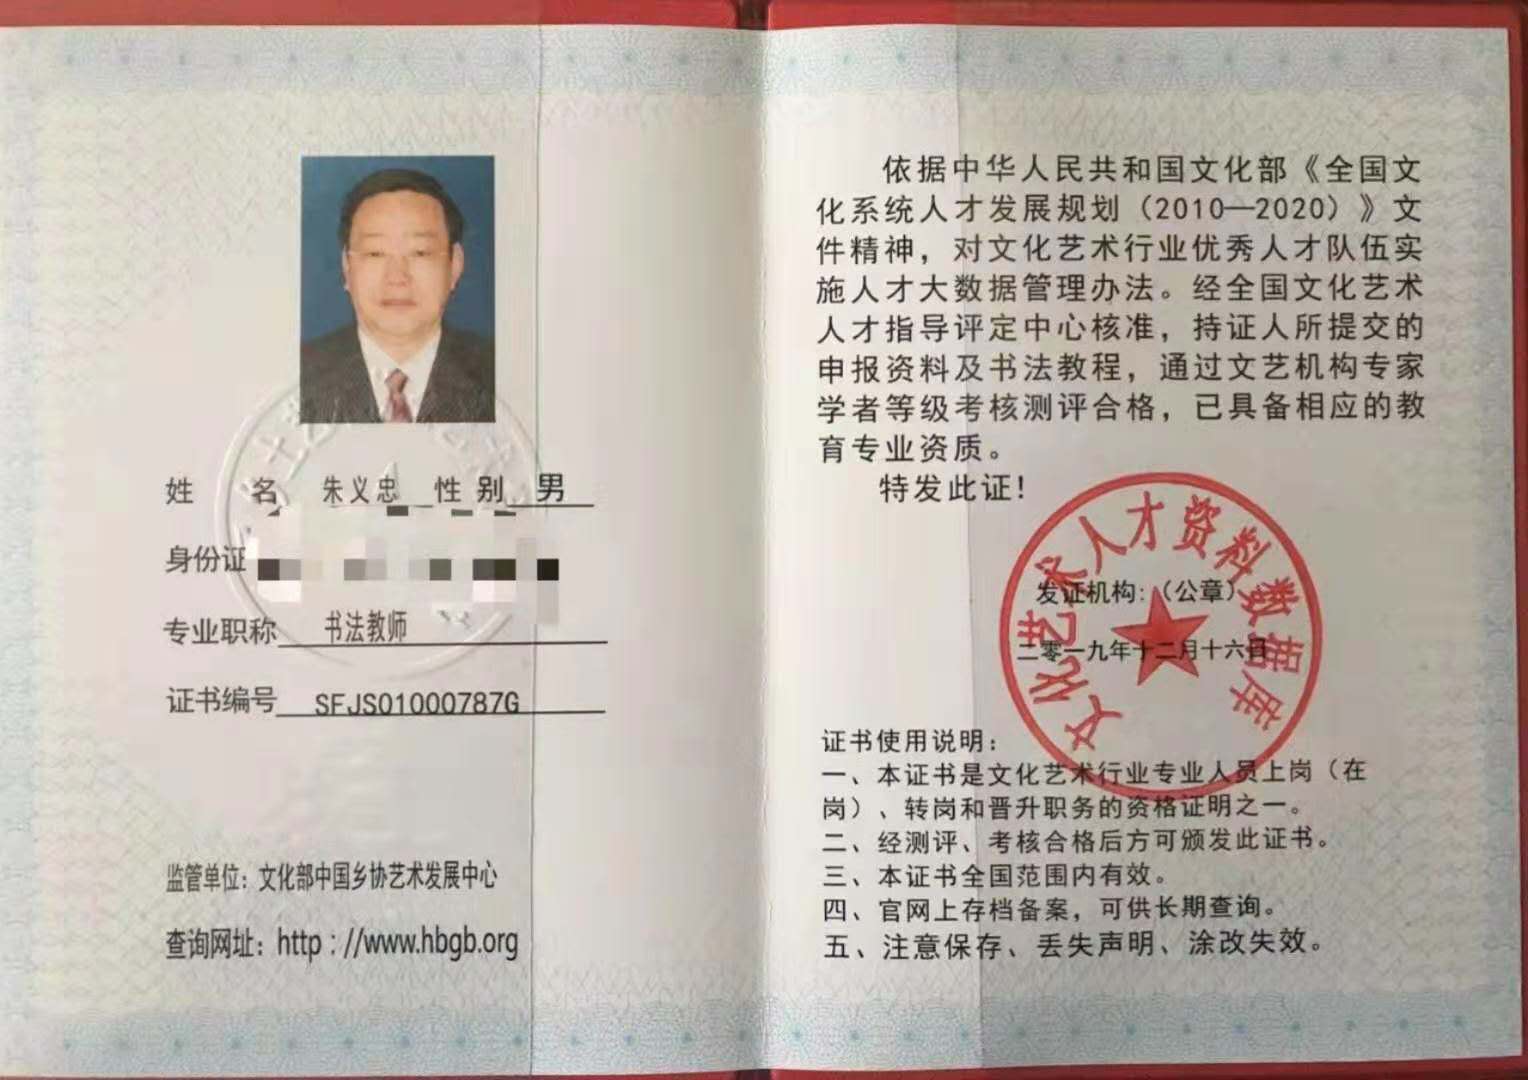 姓 名 朱义忠 性别 男
身份证
专业职称 书法教师
证书编号 SFJS01000787G
监管单位：文化部中国乡协艺术发展中心
查询网址：http：//www.hbgb.org
依据中华人民共和国文化部《全国文
化系统人才发展规划（2010—2020）》文
件精神，对文化艺术行业优秀人才队伍实
施人才大数据管理办法。经全国文化艺术
人才指导评定中心核准，持证人所提交的
申报资料及书法教程，通过文艺机构专家
学者等级考核测评合格，已具备相应的教
育专业资质。
特发此证！
文化艺术人才资料数据库
发证机构：（公章）
二零一九年十二月十六日
证书使用说明：
一、本证书是文化艺术行业专业人员上岗（在
岗）、转岗和晋升职务的资格证明之一。
二、经测评、考核合格后方可颁发此证书。
三、本证书全国范围内有效。
四、官网上存档备案，可供长期查询。
五、注意保存、丢失声明、涂改失效。